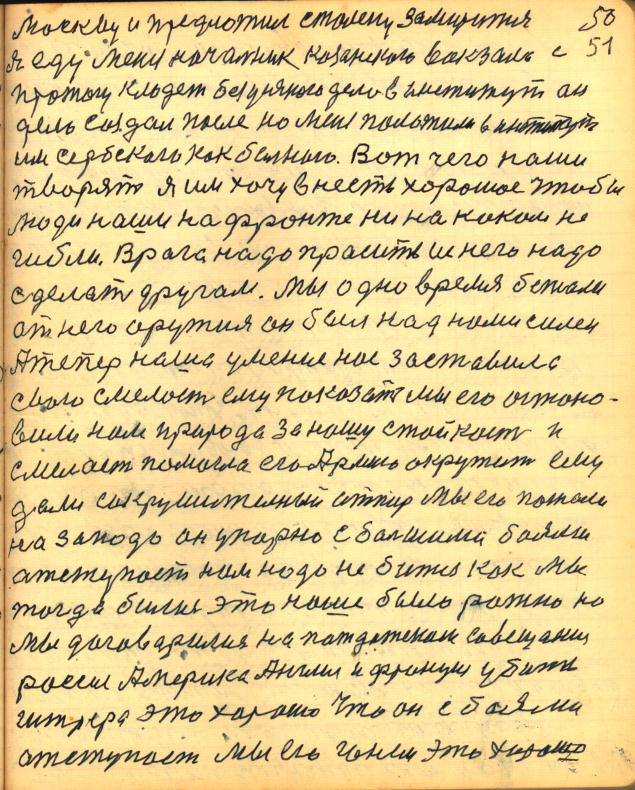 50
51
Москву и предложил сталену замирится
я еду меня началник казанского вокзала с
протоку кладет безумного дело в институт он
дело создал после но меня положили в институт
им сербского как белного. Вот чего наши
творять я им хочу внесть хорошое чтобы
люди наши на фронте ни на каком не
гибли. Врага надо прасить и с него надо
сделать другам. Мы одно время бежали
от него оружия он был над нами силен
А тепер наша умение нас заставила
свою смелость ему показать мы его остано-
вили нам природа за нашу стойкость и
смеласт помогла его Армию окружит ему
дали сокрушителный аттпор Мы его погнали
на западо он упорно с балшими боями
атступаст нам надо не битца как мы
тогда билися это наше было ражно но
мы договарилися на патдамском савещании
россии Америка Англия и франция убить
гитлера это хорашо Что он с боями
атступаст мы его гонем это хорошо